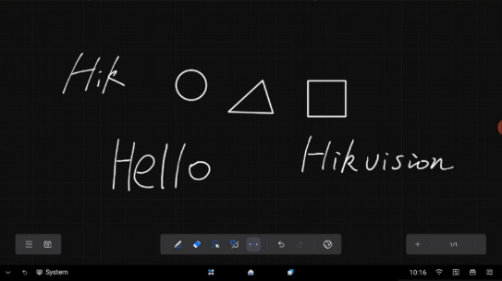 Hik
Hello
Hikvision
1/1
System
10:16